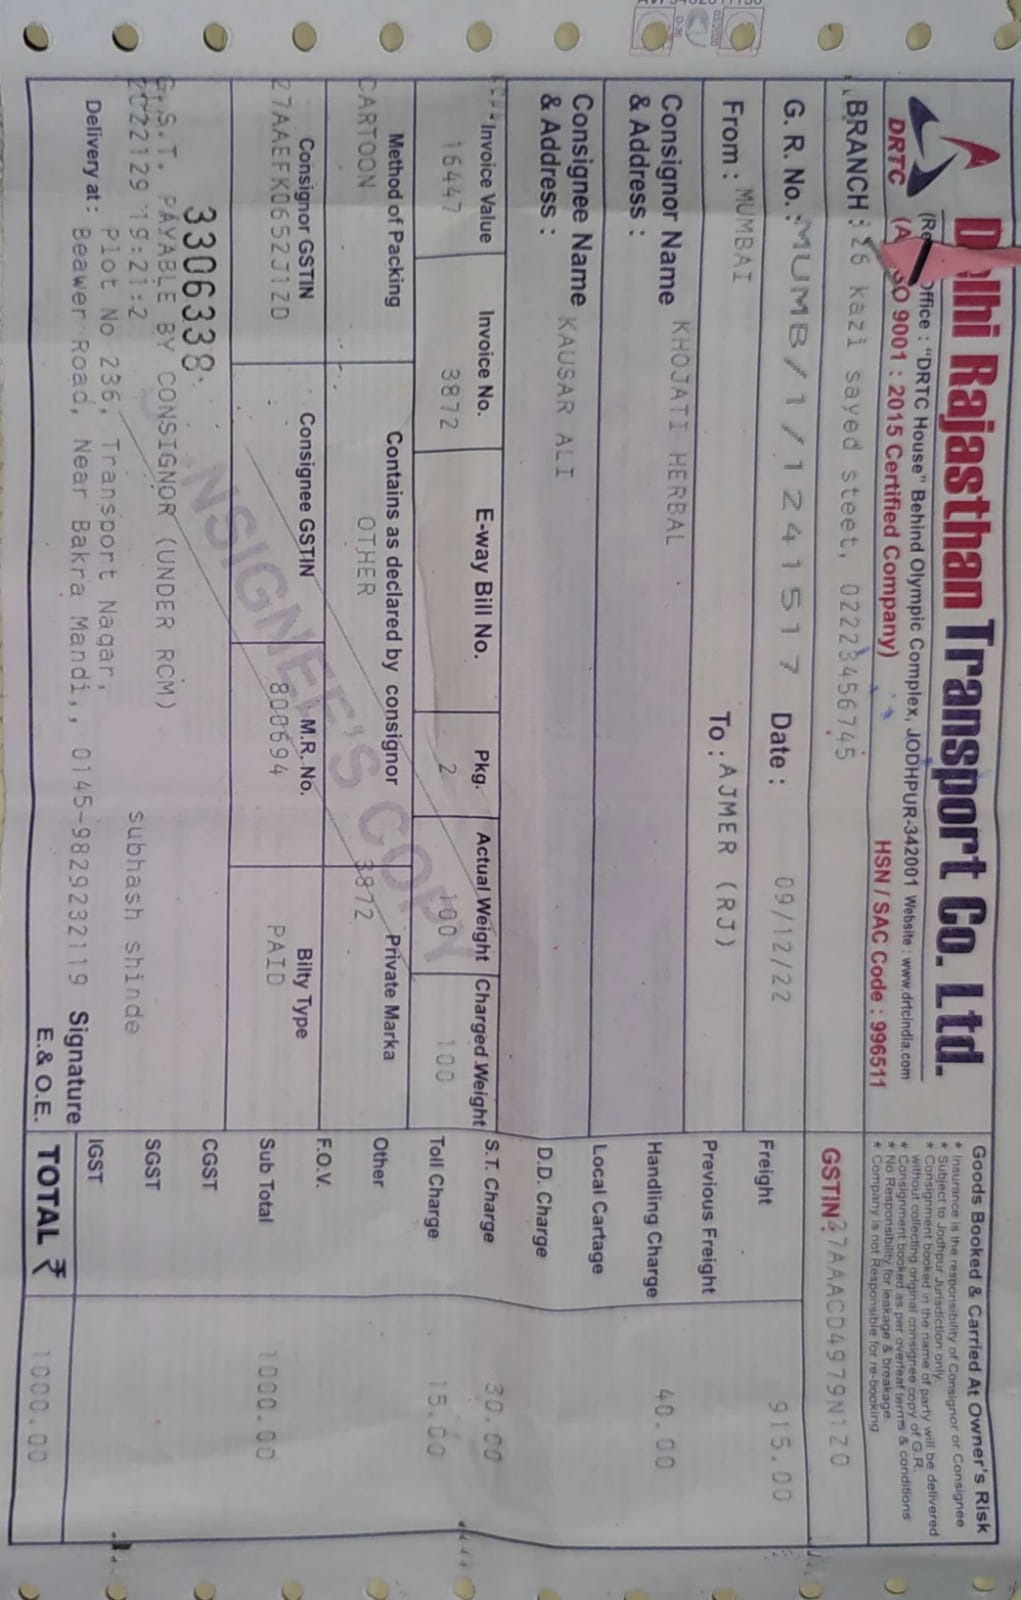 Rajasthan Transport Co. Ltd.
DRTC
Office : "DRTC House" Behind Olympic Complex, JODHPUR-342001 Website : www.drtcindia.com
9001 : 2015 Certified Company)
HSN / SAC Code : 996511
Goods Booked & Carried At Owner's Risk
* Insurance is the responsibility of Consignor or Consignee
* Subject to Jodhpur Jurisdiction only.
* Consignment booked in the name of party will be delivered
without collecting original consignee copy of G.R.
* Consignment booked as per overleaf terms & conditions
* No Responsibility for leakage & breakage.
* Company is not Responsible for re-booking
BRANCH : 26 kazi sayed steet, 02223456745
GSTIN: 27AAACD4979N1Z0
G. R. No. : MUMB/1/1241517 Date : 09/12/22
Freight 915.00
From : MUMBAI To : AJMER (RJ)
Previous Freight
Consignor Name & Address : KHOJATI HERBAL
Handling Charge 40.00
Local Cartage
Consignee Name & Address : KAUSAR ALI
D.D. Charge
Invoice Value Invoice No. E-way Bill No. Pkg. Actual Weight Charged Weight
S.T. Charge 30.00
16447 3872 2 100 100
Toll Charge 15.00
Method of Packing Contains as declared by consignor Private Marka
Other
CARTOON OTHER 3872
F.O.V.
Consignor GSTIN Consignee GSTIN M.R. No. Bilty Type
27AAEFK0652J1ZD 800694 PAID
Sub Total 1000.00
NSIGNEE'S COPY
3306338
CGST
G.S.T. PAYABLE BY CONSIGNOR (UNDER RCM)
SGST
2022129 19:21:2 subhash shinde
IGST
Delivery at : Plot No 236, Transport Nagar,
Beawer Road, Near Bakra Mandi,, 0145-9829232119 Signature
E.& O.E.
TOTAL ₹ 1000.00